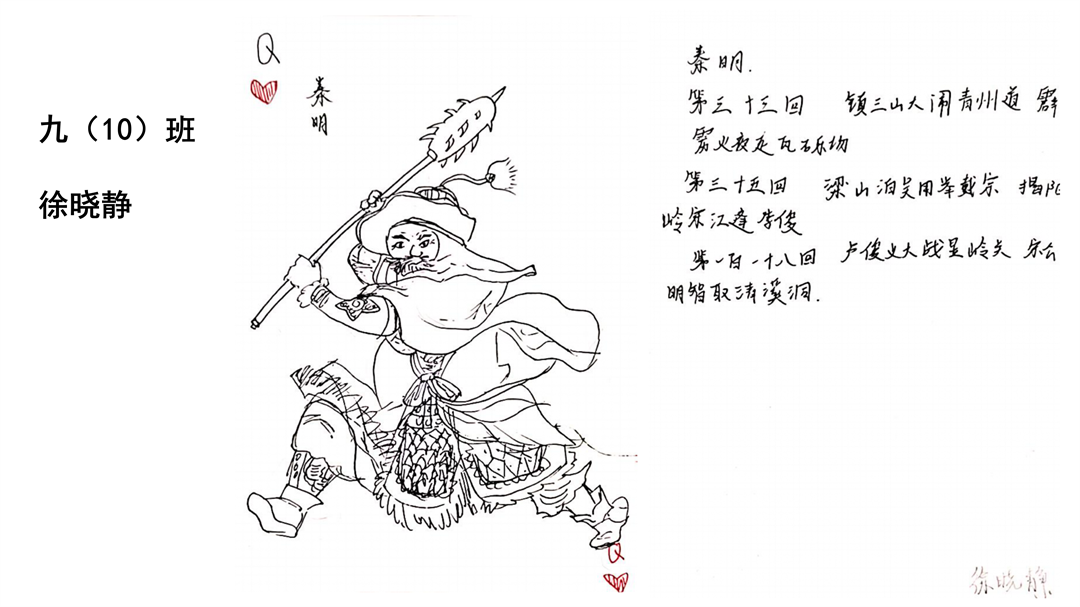 九（10）班
徐晓静
Q
秦
明
秦明.
第三十三回 镇三山大闹青州道 霹
雳火夜走瓦砾场
第三十五回 梁山泊吴用举戴宗 揭阳
岭宋江逢李俊
第一百一十八回 卢俊义大战昱岭关 宋公
明智取清溪洞.
Q
徐晓静